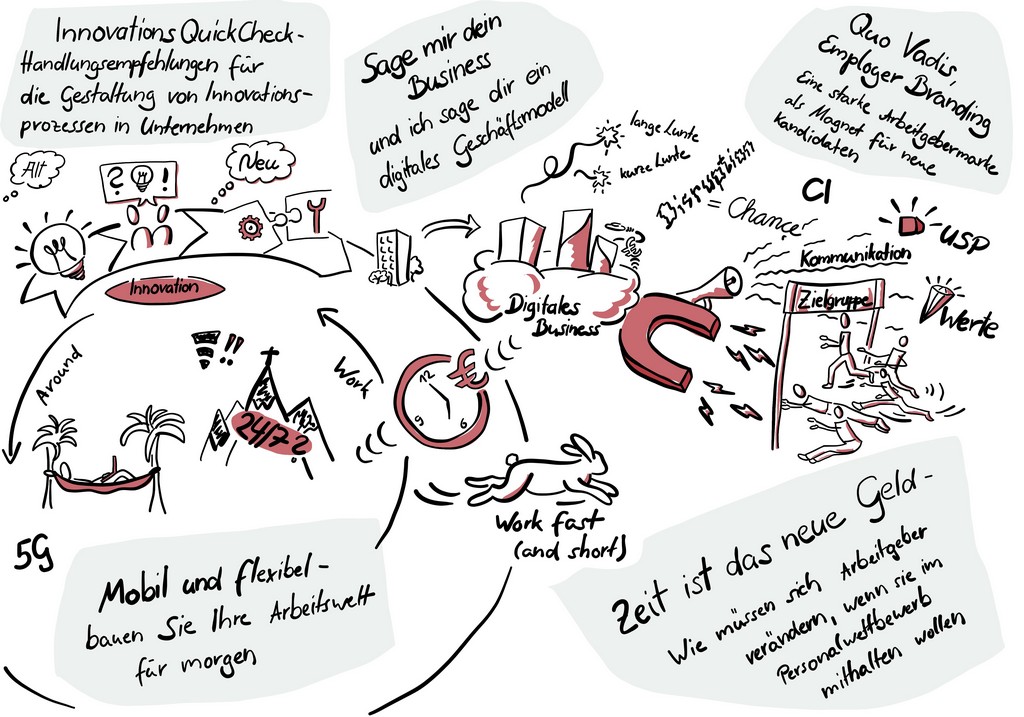 Innovations QuickCheck -
Handlungsempfehlungen für
die Gestaltung von Innovations-
prozessen in Unternehmen
Sage mir dein
Business
und ich sage dir ein
digitales Geschäftsmodell
Quo Vadis,
Employer Branding
Eine starke Arbeitgebermarke
als Magnet für neue
Kandidaten
Alt
? !
Neu
lange Lunte
kurze Lunte
Disruption
= Chance!
CI
USP
Kommunikation
Zielgruppe
Werte
Innovation
Digitales
Business
Around
Work
!!
24/7?
€
12
9
6
Work fast
(and short)
5G
Mobil und flexibel -
bauen Sie Ihre Arbeitswelt
für morgen
Zeit ist das neue Geld -
Wie müssen sich Arbeitgeber
verändern, wenn sie im
Personalwettbewerb
mithalten wollen